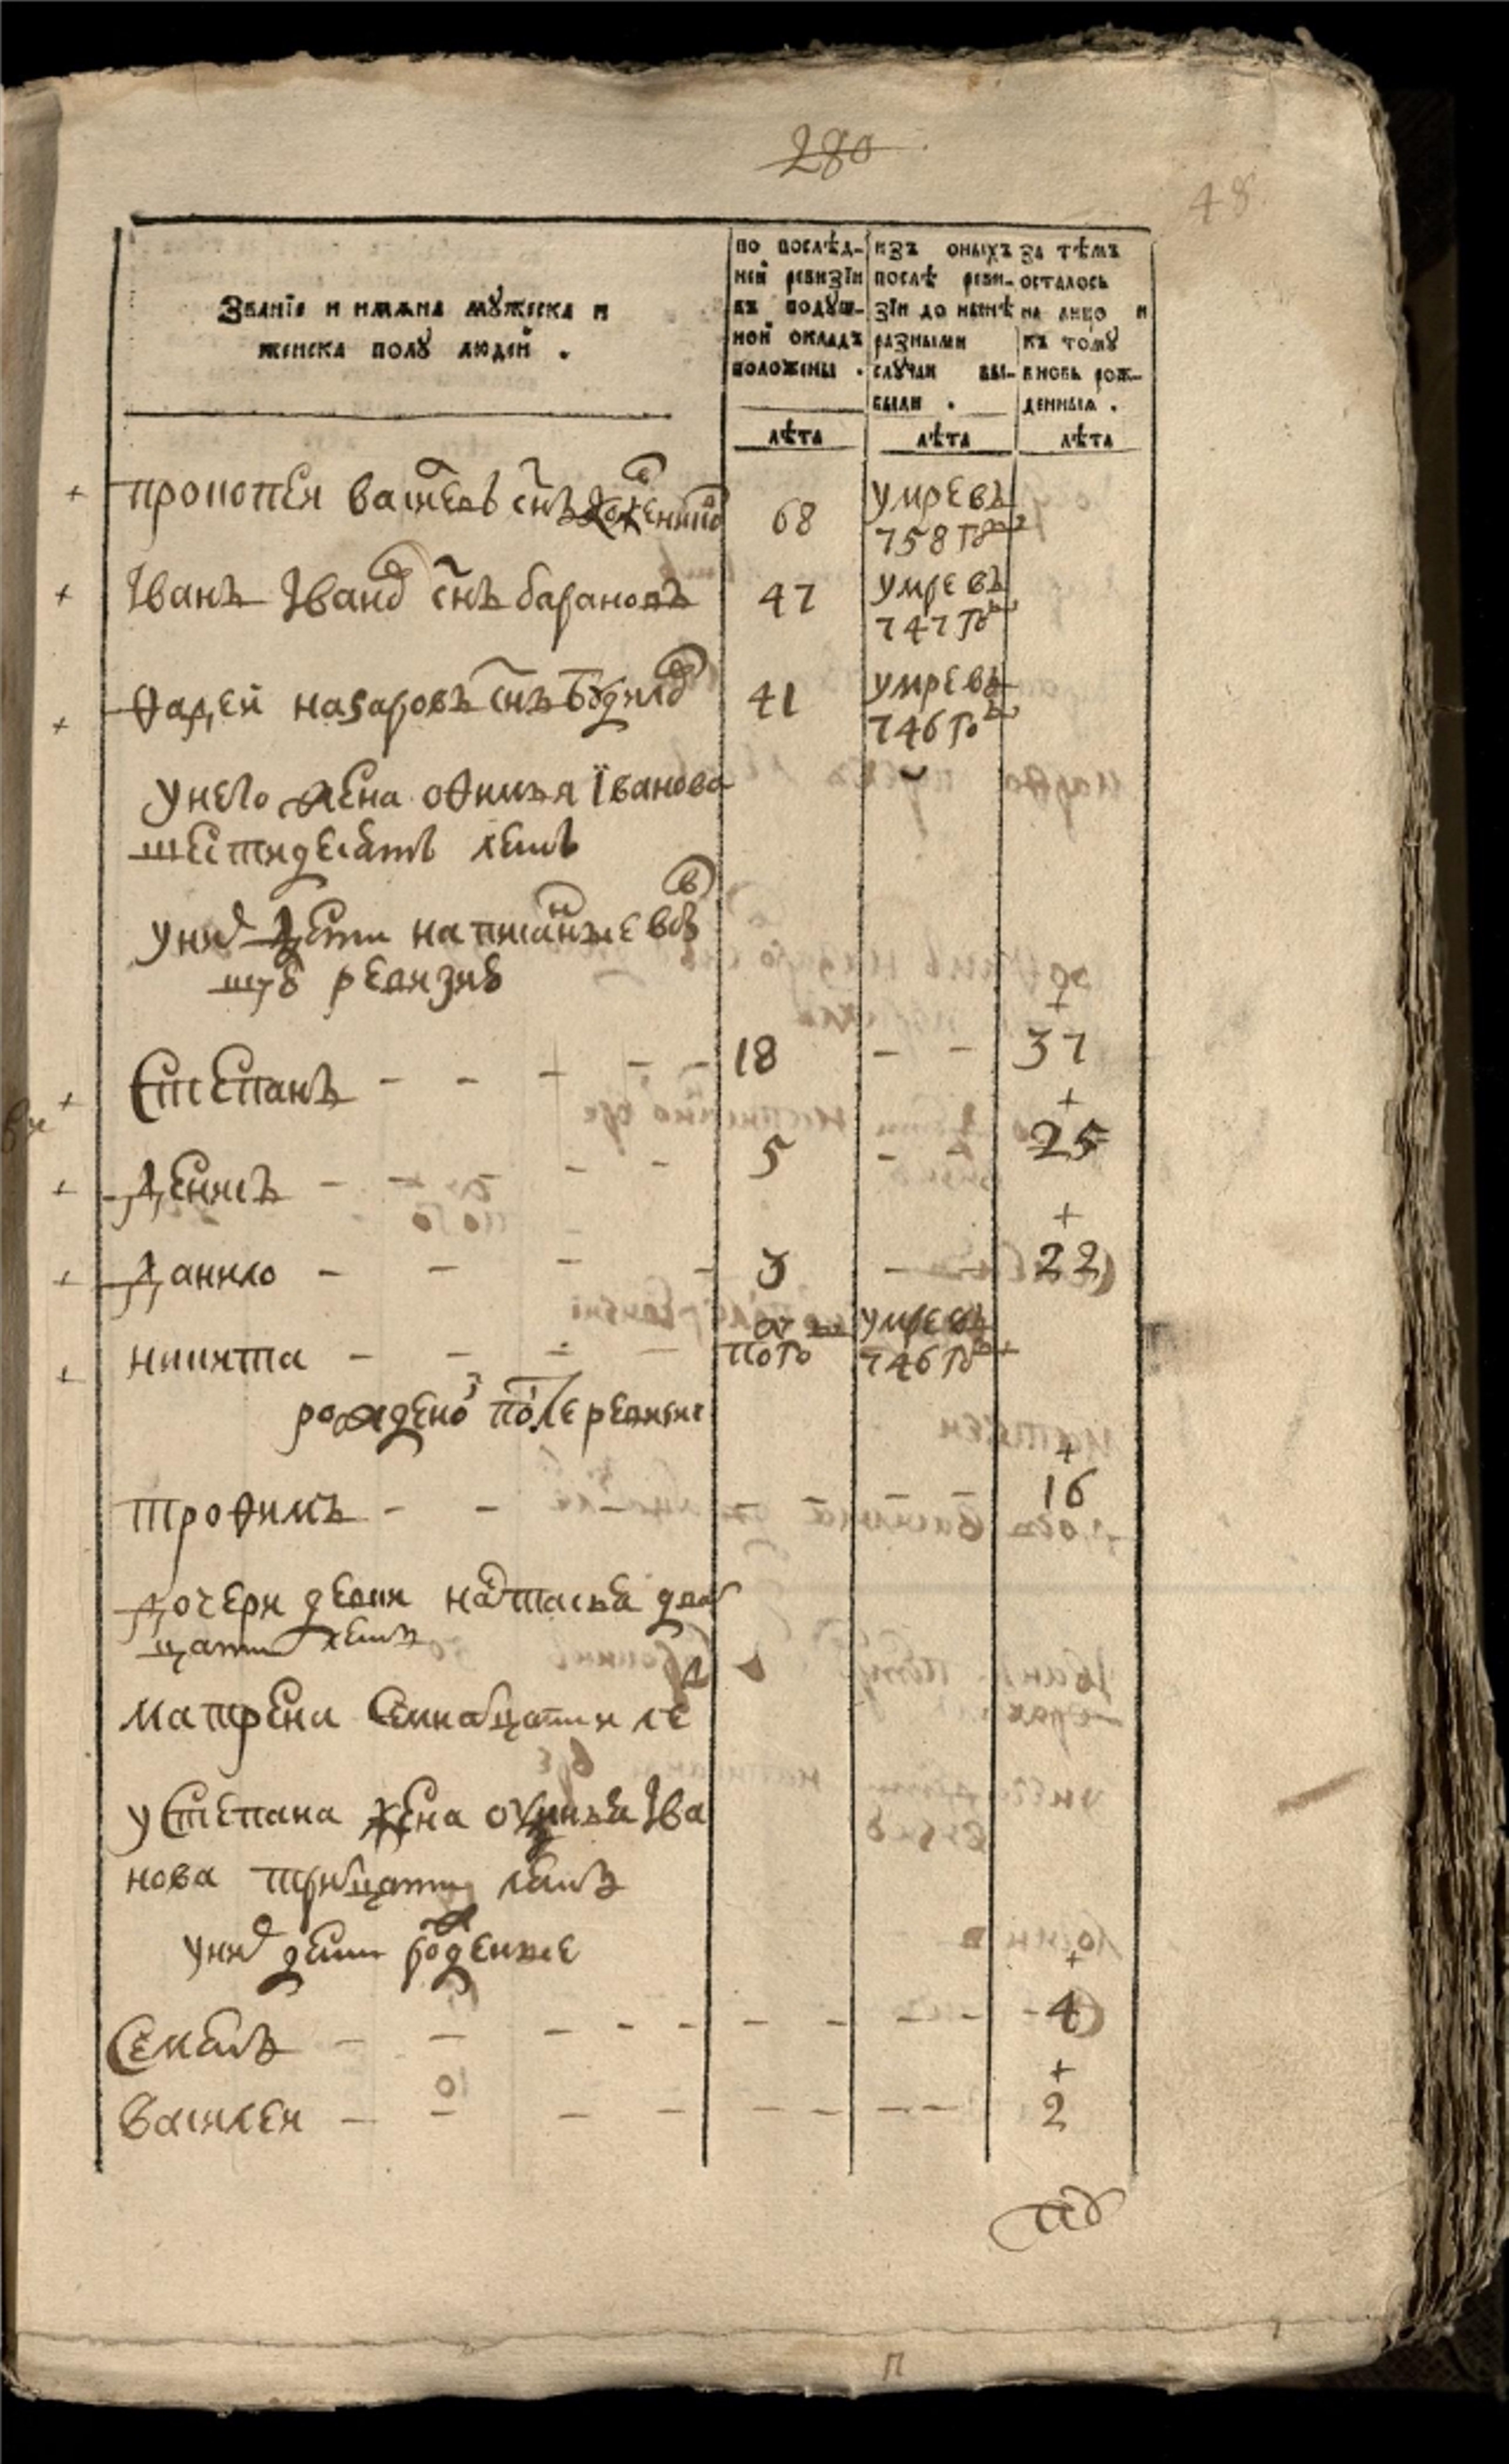 280
48
Званїе и имѧна мꙋжеска и
женска полꙋ людей .
по послѣд-
ней ревизїи
въ подꙋш-
ной окладъ
положены .
лѣта
изъ оныхъ
послѣ реви-
зїи до нынѣ
разными
слꙋчаи вы-
были .
лѣта
за тѣмъ
осталось
на лицо и
къ томꙋ
вновь рож-
денныѧ .
лѣта
прокопеи васильевъ снъ 68 умре въ
758 году
Iванъ Iвановъ снъ барановъ 47 умре въ
747 году
Ѳадеи назаровъ снъ 41 умре въ
746 году
у него жена оѳимья Їванова
шестидесятъ летъ
у них дети написанные в
ревизиѣ
Степанъ 18 - - 37
Денисъ 5 - - 25
Данило 3 - - 22
никита полго умре въ
746 году
рожденой после ревизиі
троѳимъ 16
дочери девки настасья дват
цати летъ
матрена семнатцати ле
у степана жена Iва
нова тритцати летъ
у них дети рожденые
Семенъ 4
Василеи 2
п